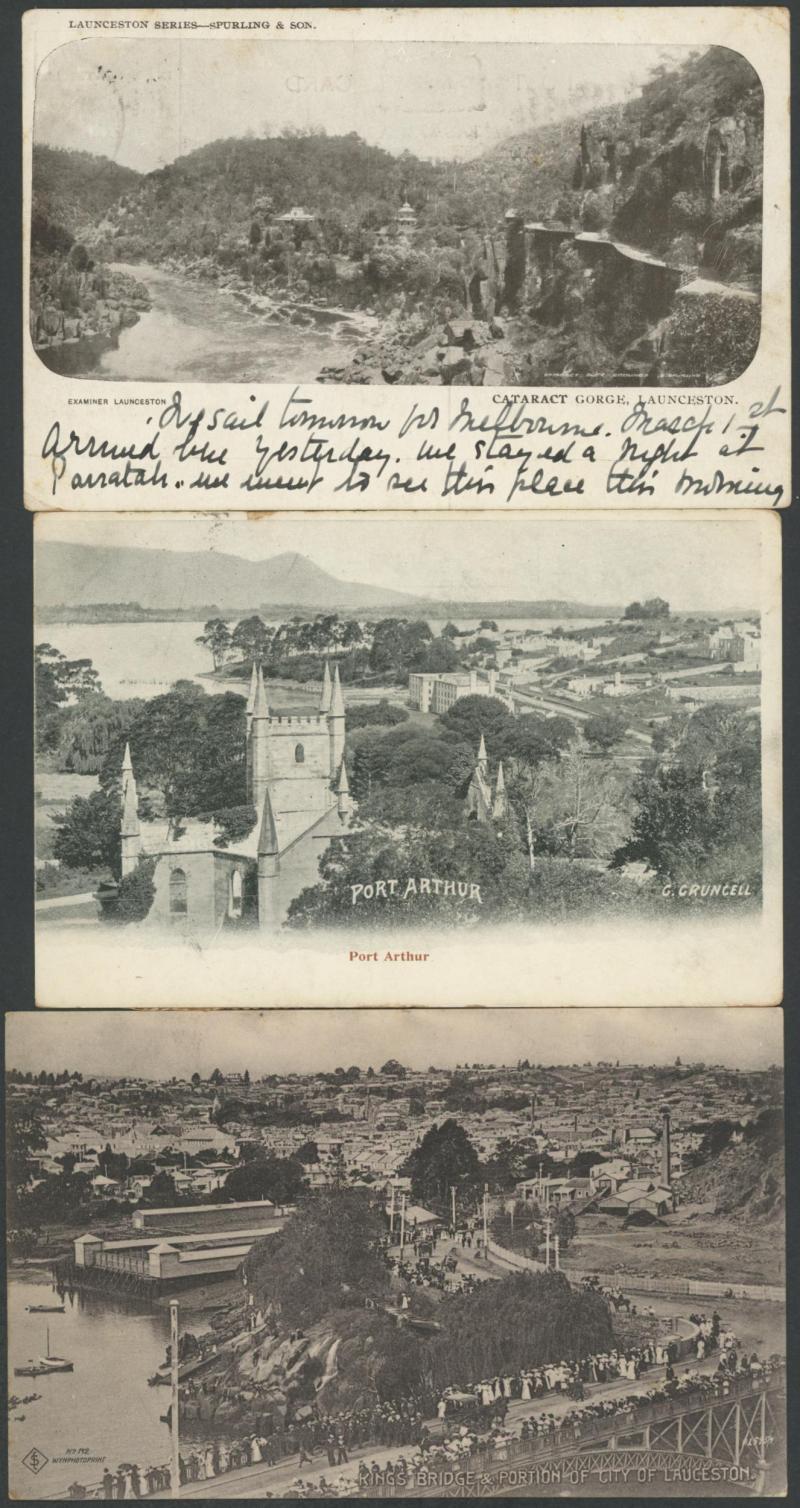 LAUNCESTON SERIES—SPURLING & SON.
EXAMINER LAUNCESTON
CATARACT GORGE, LAUNCESTON.
sail tomorrow for Melbourne. March 1st
Arrived here yesterday. we stayed a night at
Parratah. we went to see this place this morning
PORT ARTHUR
C. GRUNCELL
Port Arthur
No 142
WYNPHOTOPRINT
KINGS BRIDGE & PORTION OF CITY OF LAUCESTON.